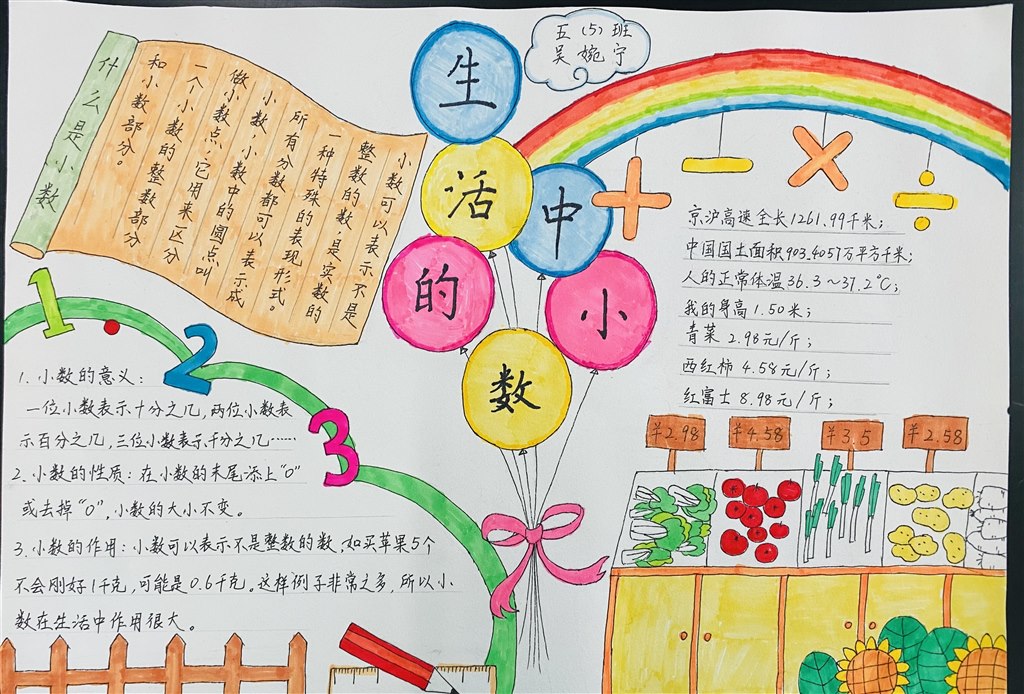 什么是小数
小数可以表示不是
整数的数,是实数的
一种特殊的表现形式。
所有分数都可以表示成
小数,小数中的圆点叫
做小数点,它用来区分
一个小数的整数部分
和小数部分。
生
活
中
的
小
数
五(5)班
吴婉宁
+ − × ÷
京沪高速全长1261.99千米;
中国国土面积903.4057万平方千米;
人的正常体温36.3~37.2℃;
我的身高1.50米;
青菜 2.98元/斤;
西红柿 4.58元/斤;
红富士 8.98元/斤;
¥2.98
¥4.58
¥3.5
¥2.58
1.23
1.小数的意义:
一位小数表示十分之几,两位小数表
示百分之几,三位小数表示千分之几……
2.小数的性质:在小数的末尾添上“0”
或去掉“0”,小数的大小不变。
3.小数的作用:小数可以表示不是整数的数,如买苹果5个
不会刚好1千克,可能是0.6千克。这样例子非常之多,所以小
数在生活中作用很大。